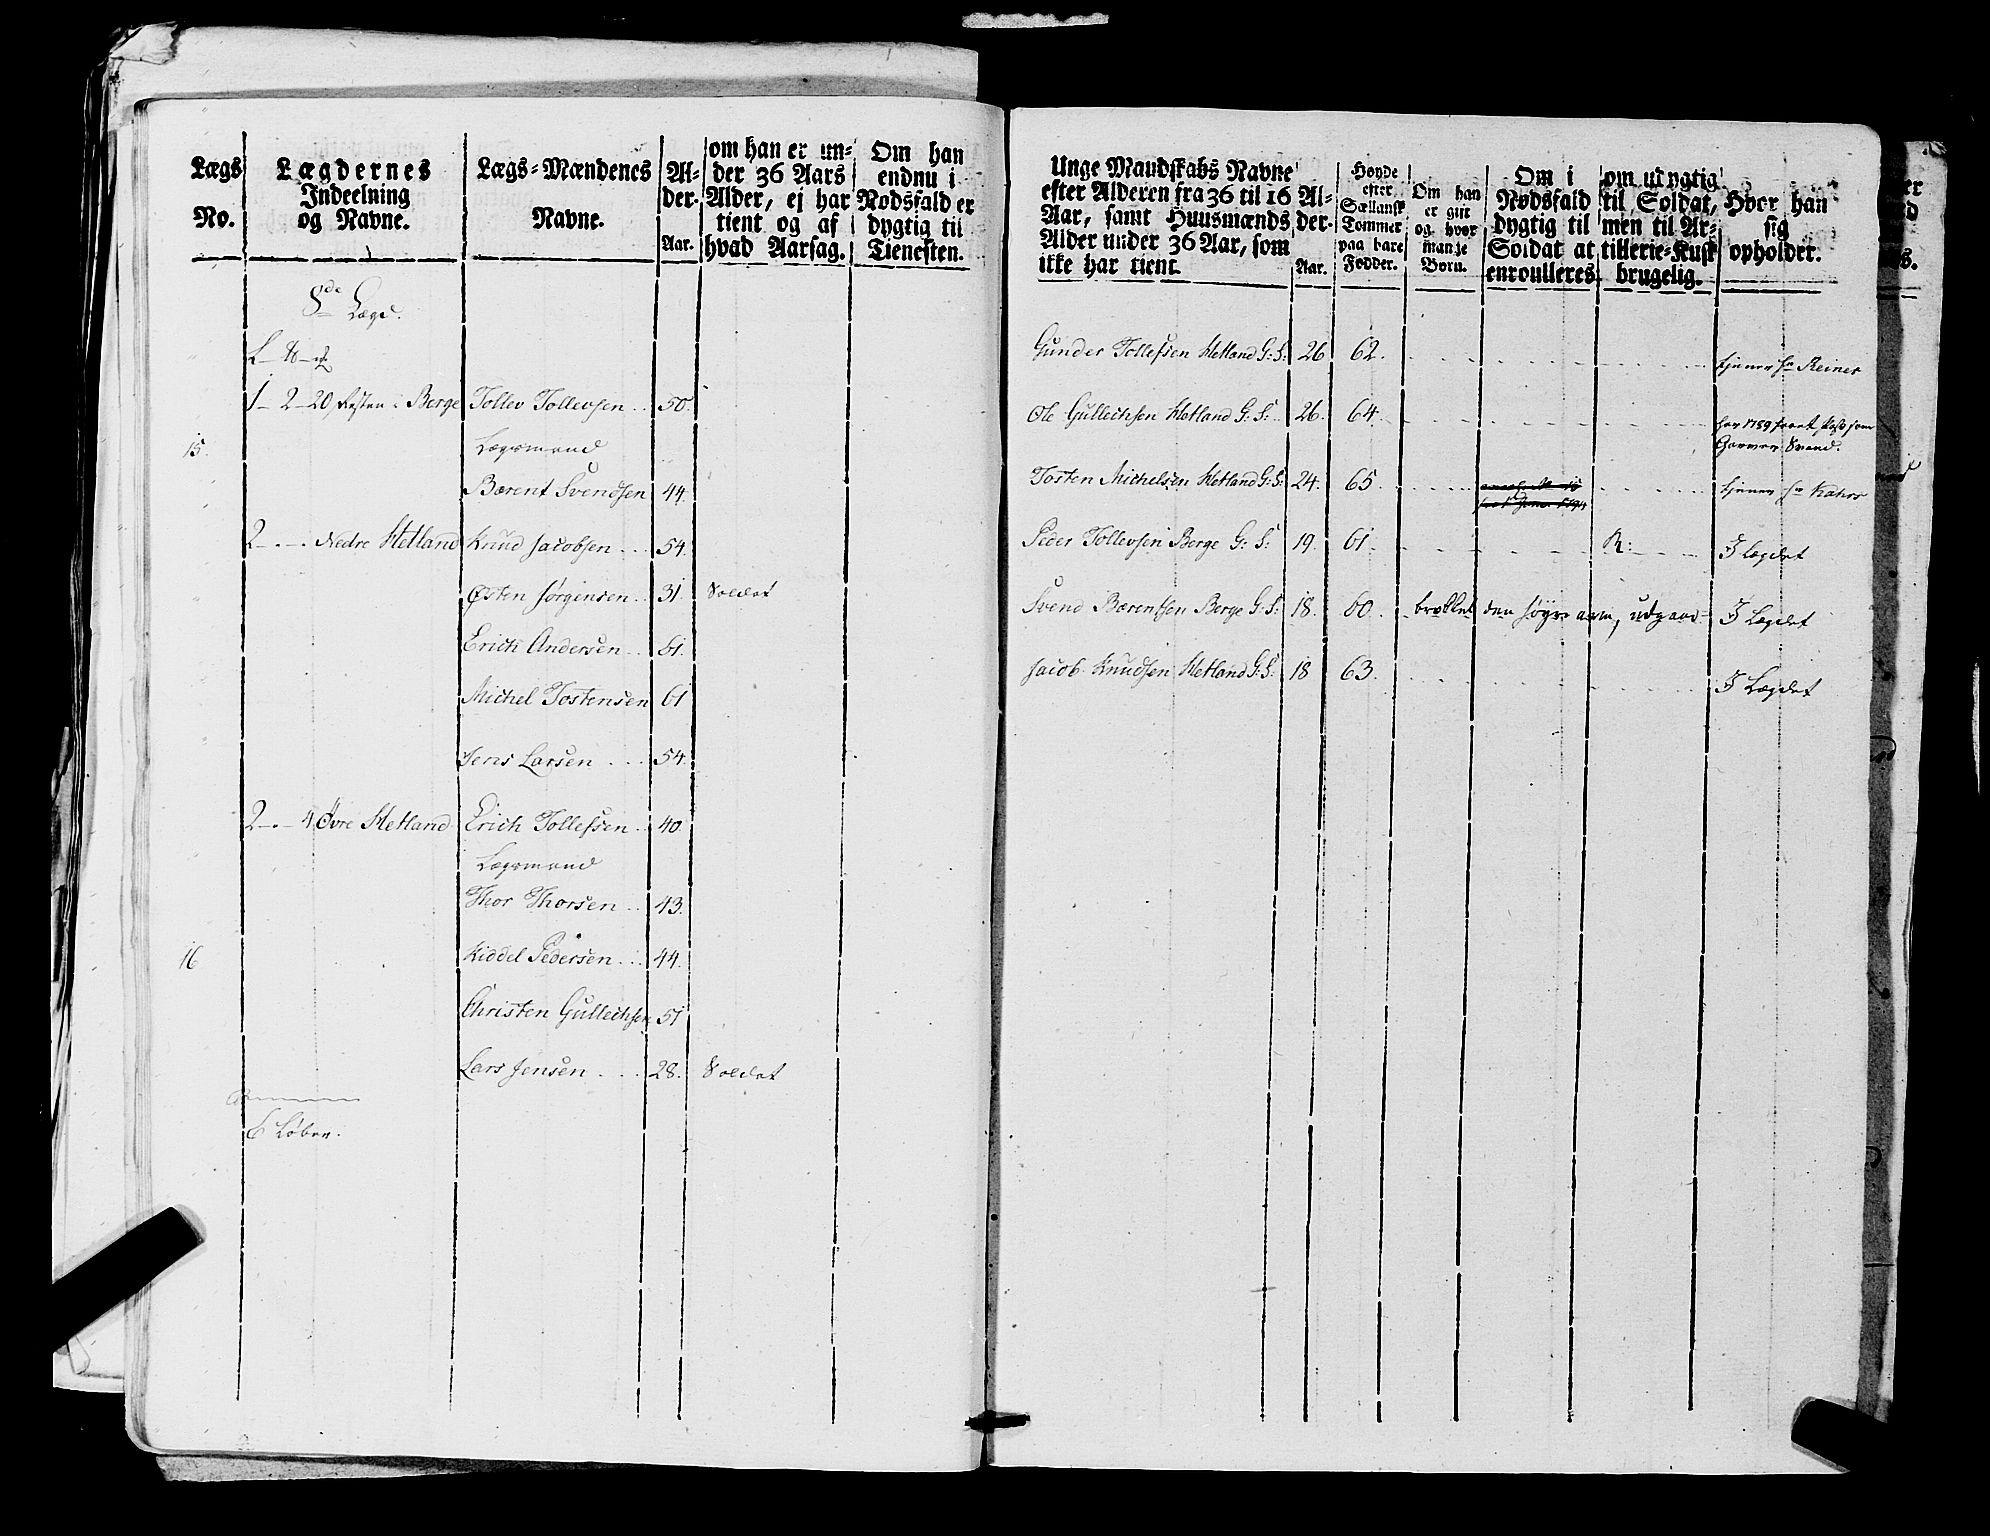 Lægs No.
Lægdernes Indeelning og Navne.
Lægs-Mændenes Navne.
Al-der. Aar.
om han er un-
der 36 Aars
Alder, ej har
tient og af
hvad Aarsag.
Om han
endnu i
Nødsfald er
dygtig til
Tienesten.
8de Lægd.
1 – 2 – 20 Resten i Berge Tollev Tollevsen .. 50.
15. Lægsmand
Bærent Svendsen 44.
2 – . – Nedre Hetland Knud Jacobsen ... 54.
Østen Jørgensen .. 31. Soldat
Erich Andersen .. 61.
Michel Tostensen 61
Jens Larsen .... 54.
2 – . – 4 Øvre Hetland Erich Tollefsen .. 40.
Lægsmand
Thor Thorsen ... 43.
16 Kiddel Pedersen ... 44.
Christen Gullechsen 51
Lars Jensen .... 28. Soldat
6 Løber.
Unge Mandskabs Navne
efter Alderen fra 36 til 16
Aar, samt Huusmænds
Alder under 36 Aar, som
ikke har tient.
Al-
der.
Aar.
Høyde
efter
Sællansk
Tommer
paa bare
Fødder.
Om han
er gift
og hvor
mange
Børn.
Om i
Nødsfald
dygtig til
Soldat at
enroulleres
om udygtig
til Soldat,
men til Ar-
tillerie-Kusk
brugelig.
Hvor han
sig
opholder.
Gunder Tollefsen Hetland G: S: 26 62. tjener hr Reiner
Ole Gullechsen Hetland G: S: 26. 64. har 1789 faaet Pas som
Garver Svend.
Tosten Michelsen Hetland G: S: 24. 65. tjener hr Kahrs
Peder Tollevsen Berge G: S: 19. 61. R: I Lægdet
Svend Bærentsen Berge G: S: 18. 60. brekket den høyre arm, udgaar I Lægdet
Jacob Knudsen Hetland G: S: 18 63. I Lægdet